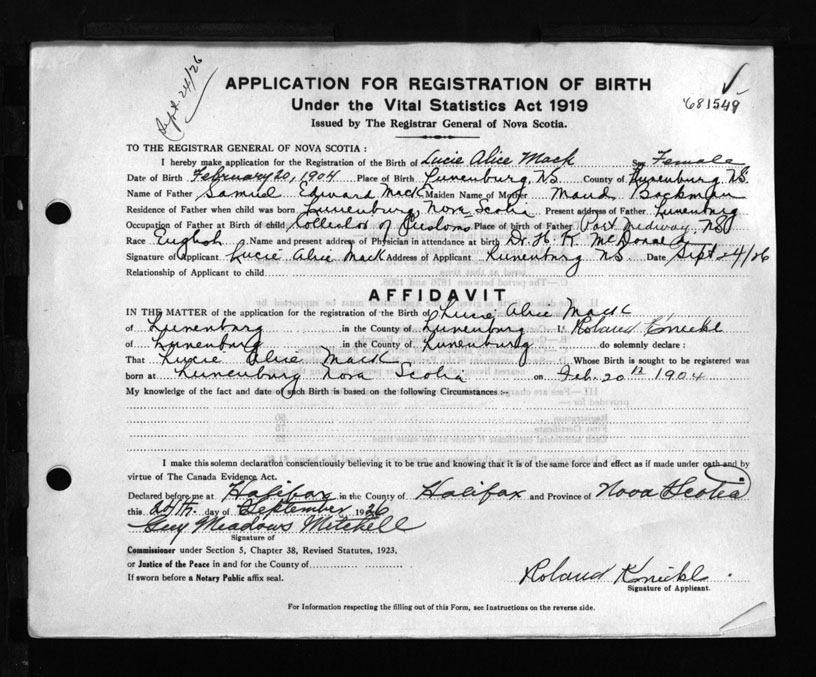 Sept. 24/26
APPLICATION FOR REGISTRATION OF BIRTH
Under the Vital Statistics Act 1919
Issued by The Registrar General of Nova Scotia.
681549
TO THE REGISTRAR GENERAL OF NOVA SCOTIA :
I hereby make application for the Registration of the Birth of Lucie Alice Mack Sex Female
Date of Birth February 20, 1904 Place of Birth Lunenburg, NS County of Lunenburg NS.
Name of Father Samuel Edward Mack Maiden Name of Mother Maud Bockman
Residence of Father when child was born Lunenburg, Nova Scotia Present address of Father Lunenburg
Occupation of Father at Birth of child Collector of Customs Place of birth of Father Port Medway, NS
Race English Name and present address of Physician in attendance at birth Dr. H. K. McDonald
Signature of Applicant Lucie Alice Mack Address of Applicant Lunenburg NS Date Sept 24/26
Relationship of Applicant to child
AFFIDAVIT
IN THE MATTER of the application for the registration of the Birth of Lucie Alice Mack
of Lunenburg in the County of Lunenburg I, Roland Knickl
of Lunenburg in the County of Lunenburg do solemnly declare :
That Lucie Alice Mack Whose Birth is sought to be registered was
born at Lunenburg Nova Scotia on Feb. 20th 1904
My knowledge of the fact and date of such Birth is based on the following Circumstances :-
I make this solemn declaration conscientiously believing it to be true and knowing that it is of the same force and effect as if made under oath and by
virtue of The Canada Evidence Act.
Declared before me at Halifax in the County of Halifax and Province of Nova Scotia
this 24th day of September 1926
Guy Meadows Mitchell
Signature of
Commissioner under Section 5, Chapter 38, Revised Statutes, 1923.
or Justice of the Peace in and for the County of
If sworn before a Notary Public affix seal.
Roland Knickl
Signature of Applicant.
For Information respecting the filling out of this Form, see Instructions on the reverse side.